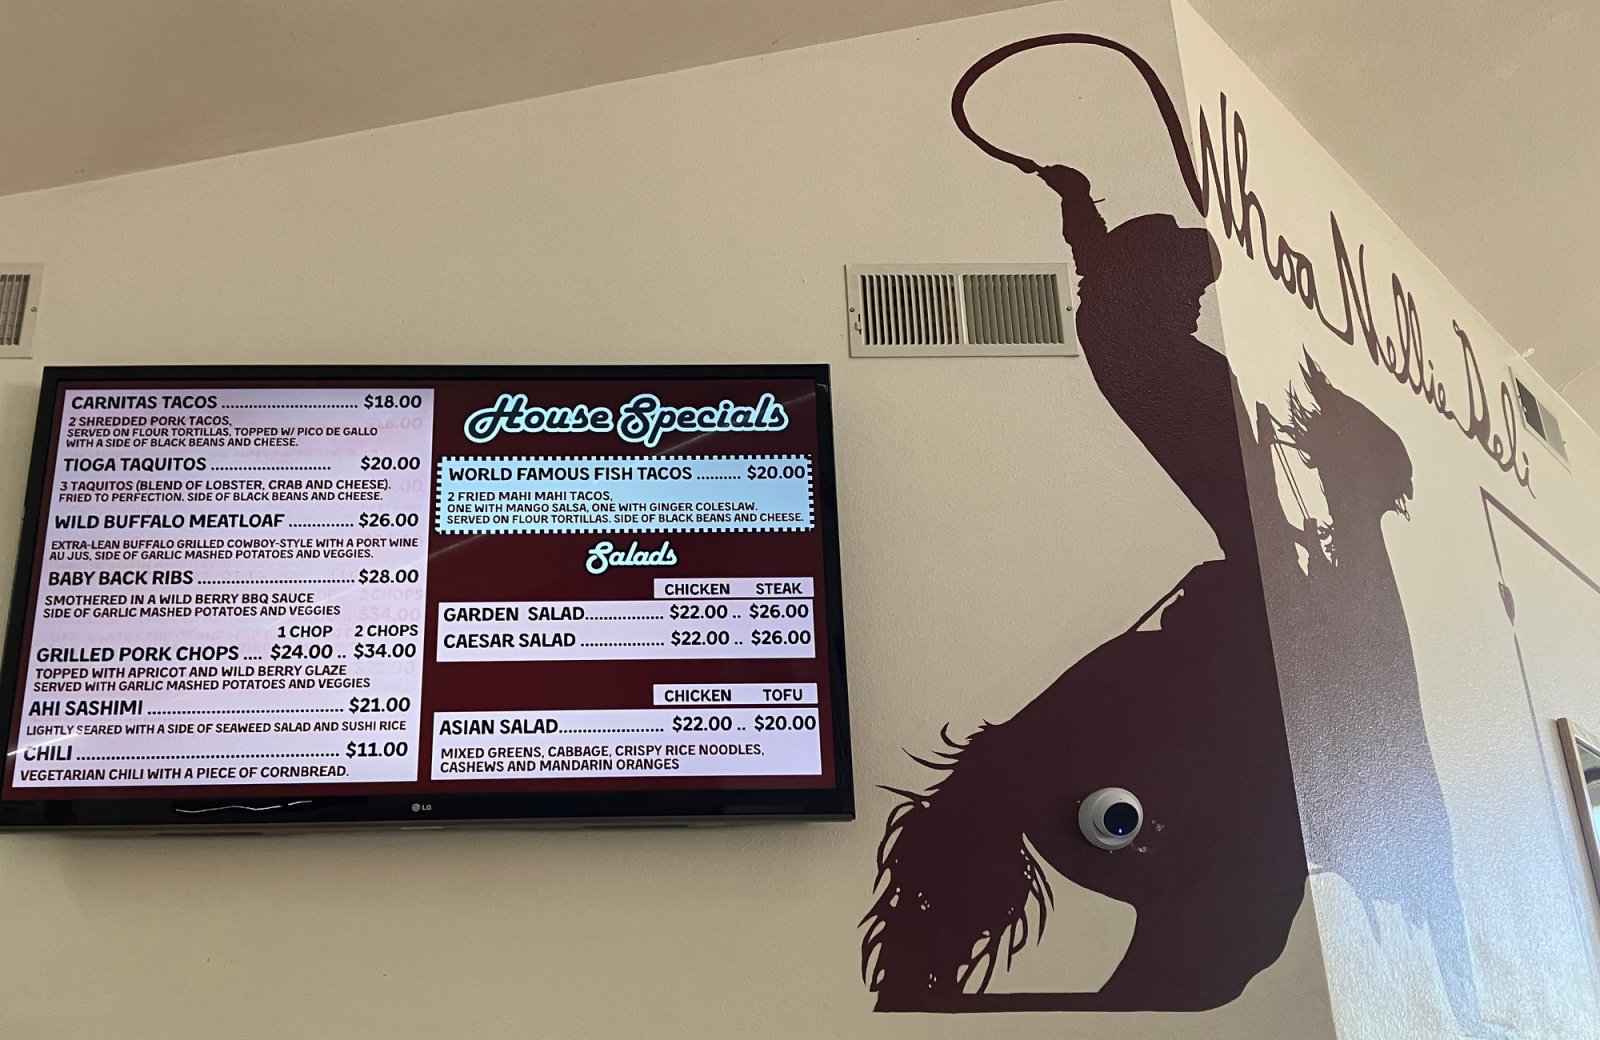 CARNITAS TACOS ................................ $18.00
2 SHREDDED PORK TACOS,
SERVED ON FLOUR TORTILLAS, TOPPED W/ PICO DE GALLO
WITH A SIDE OF BLACK BEANS AND CHEESE.
TIOGA TAQUITOS ............................ $20.00
3 TAQUITOS (BLEND OF LOBSTER, CRAB AND CHEESE).
FRIED TO PERFECTION. SIDE OF BLACK BEANS AND CHEESE.
WILD BUFFALO MEATLOAF ............... $26.00
EXTRA-LEAN BUFFALO GRILLED COWBOY-STYLE WITH A PORT WINE
AU JUS, SIDE OF GARLIC MASHED POTATOES AND VEGGIES.
BABY BACK RIBS .................................... $28.00
SMOTHERED IN A WILD BERRY BBQ SAUCE
SIDE OF GARLIC MASHED POTATOES AND VEGGIES
1 CHOP 2 CHOPS
GRILLED PORK CHOPS .... $24.00 .. $34.00
TOPPED WITH APRICOT AND WILD BERRY GLAZE
SERVED WITH GARLIC MASHED POTATOES AND VEGGIES
AHI SASHIMI ............................................. $21.00
LIGHTLY SEARED WITH A SIDE OF SEAWEED SALAD AND SUSHI RICE
CHILI ............................................................ $11.00
VEGETARIAN CHILI WITH A PIECE OF CORNBREAD.
House Specials
WORLD FAMOUS FISH TACOS .......... $20.00
2 FRIED MAHI MAHI TACOS,
ONE WITH MANGO SALSA, ONE WITH GINGER COLESLAW.
SERVED ON FLOUR TORTILLAS. SIDE OF BLACK BEANS AND CHEESE.
Salads
CHICKEN STEAK
GARDEN SALAD.................. $22.00 .. $26.00
CAESAR SALAD ................... $22.00 .. $26.00
CHICKEN TOFU
ASIAN SALAD........................ $22.00 .. $20.00
MIXED GREENS, CABBAGE, CRISPY RICE NOODLES,
CASHEWS AND MANDARIN ORANGES
LG
Whoa Nellie Deli